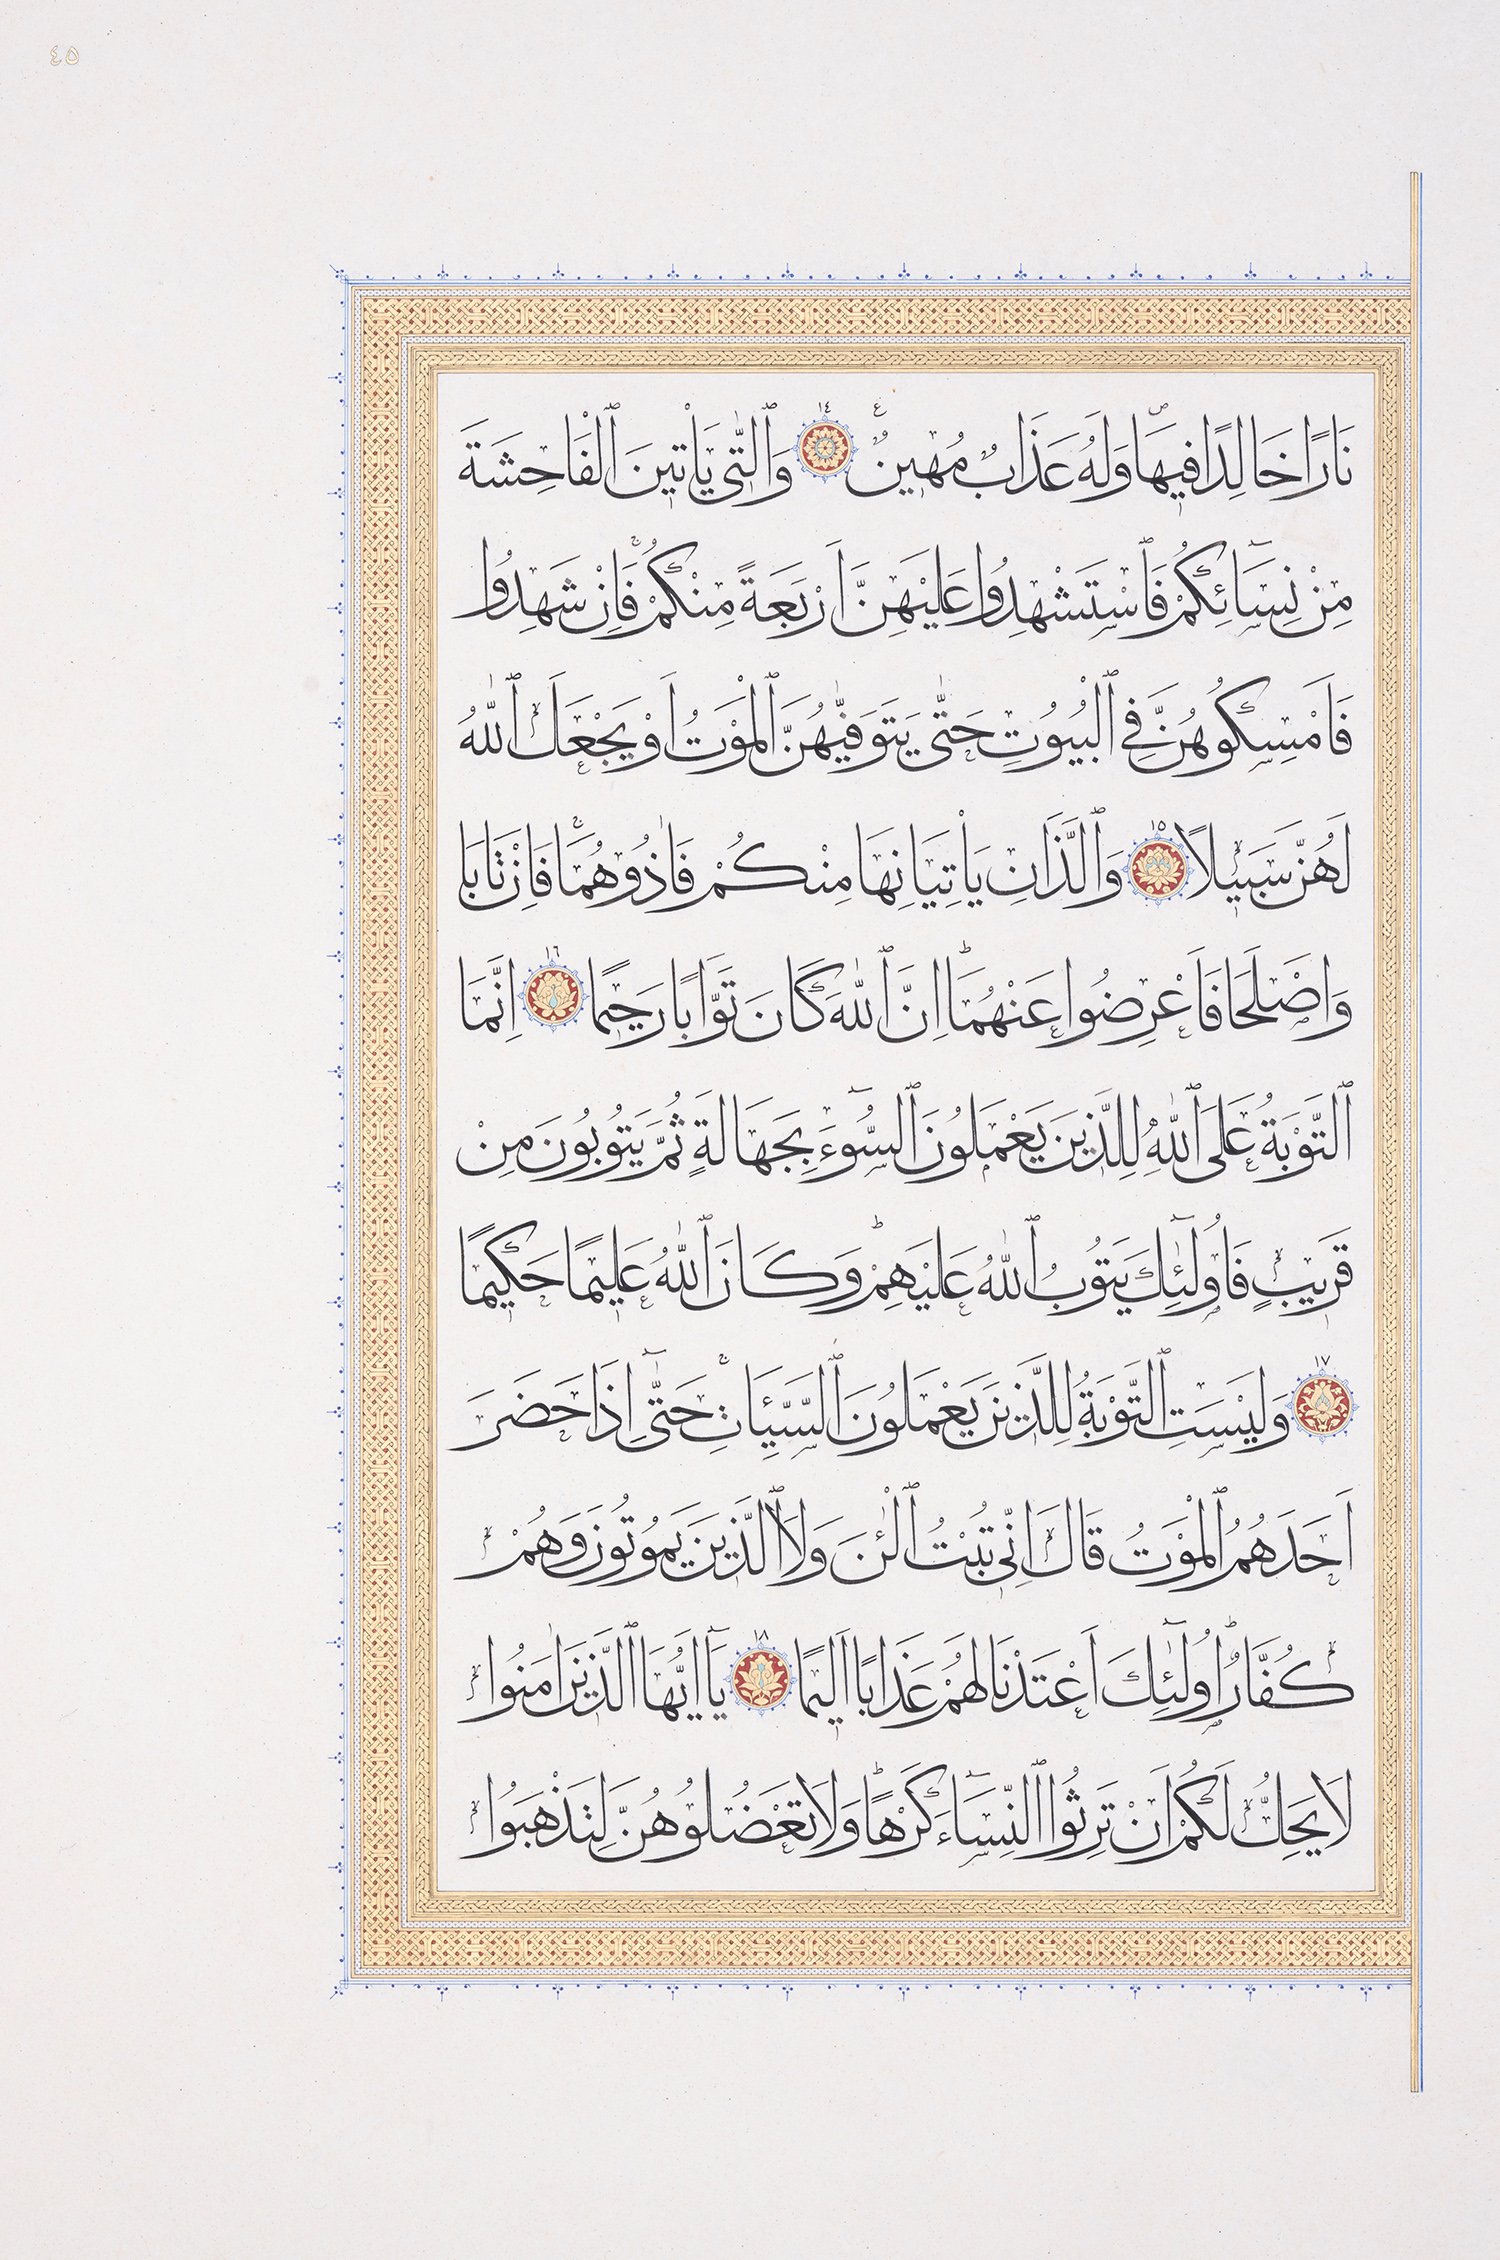 ٤٥
نَارًا خَالِدًا فِيهَاۖ وَلَهُ عَذَابٌ مُهِينٌ ۟ ١٤ وَٱلّٰتِى يَأْتِينَ ٱلْفَاحِشَةَ
مِنْ نِسَٓائِكُمْ فَٱسْتَشْهِدُوا عَلَيْهِنَّ اَرْبَعَةً مِنْكُمْۚ فَاِنْ شَهِدُوا
فَاَمْسِكُوهُنَّ فِى ٱلْبُيُوتِ حَتّٰى يَتَوَفّٰيهُنَّ ٱلْمَوْتُ اَوْ يَجْعَلَ ٱللّٰهُ
لَهُنَّ سَبِيلًا ١٥ وَٱلَّذَانِ يَأْتِيَانِهَا مِنْكُمْ فَاٰذُوهُمَاۚ فَاِنْ تَابَا
وَاَصْلَحَا فَاَعْرِضُوا عَنْهُمَاؕ اِنَّ ٱللّٰهَ كَانَ تَوَّابًا رَحِيمًا ١٦ اِنَّمَا
ٱلتَّوْبَةُ عَلَى ٱللّٰهِ لِلَّذِينَ يَعْمَلُونَ ٱلسُّٓوءَ بِجَهَالَةٍ ثُمَّ يَتُوبُونَ مِنْ
قَرِيبٍ فَاُو۬لٰٓئِكَ يَتُوبُ ٱللّٰهُ عَلَيْهِمْؕ وَكَانَ ٱللّٰهُ عَلِيمًا حَكِيمًا
١٧ وَلَيْسَتِ ٱلتَّوْبَةُ لِلَّذِينَ يَعْمَلُونَ ٱلسَّيِّئَاتِۚ حَتّٰٓى اِذَا حَضَرَ
اَحَدَهُمُ ٱلْمَوْتُ قَالَ اِنِّى تُبْتُ ٱلْـٰٔنَ وَلَا ٱلَّذِينَ يَمُوتُونَ وَهُمْ
كُفَّارٌؕ اُو۬لٰٓئِكَ اَعْتَدْنَا لَهُمْ عَذَابًا اَلِيمًا ١٨ يَٓا اَيُّهَا ٱلَّذِينَ اٰمَنُوا
لَا يَحِلُّ لَكُمْ اَنْ تَرِثُوا ٱلنِّسَٓاءَ كَرْهًاؕ وَلَا تَعْضُلُوهُنَّ لِتَذْهَبُوا